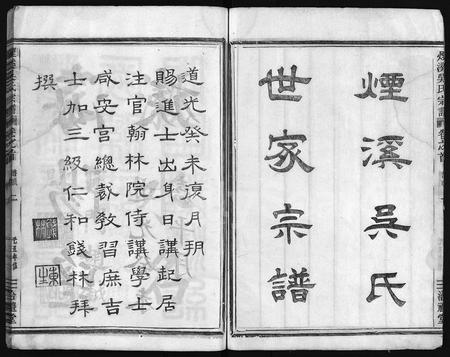 煙溪吳氏
世家宗譜
煙溪吳氏宗譜
卷之首
道光癸未復月朔
賜進士出身日講起居
注官翰林院侍講學士
咸安宮總裁教習庶吉
士加三級仁和錢林拜
撰